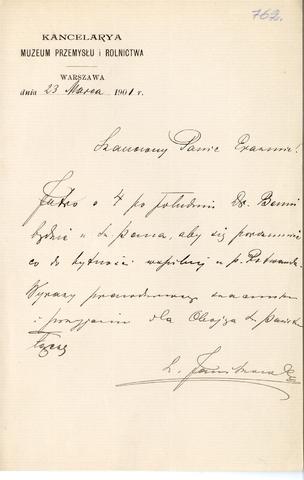 762.
KANCELARYA
MUZEUM PRZEMYSŁU i ROLNICTWA
WARSZAWA
dnia 23 Marca 1901 r.
Szanowny Panie Erazmie!
Jutro o 4 po południu Dr. Benni
będzie u Sz. Pana, aby się porozumieć
co do bytności wspólnej u p. Rotwanda.
Wyrazy prawdziwego szacunku
i przyjaźni dla Obojga Sz. Państwa
łączę